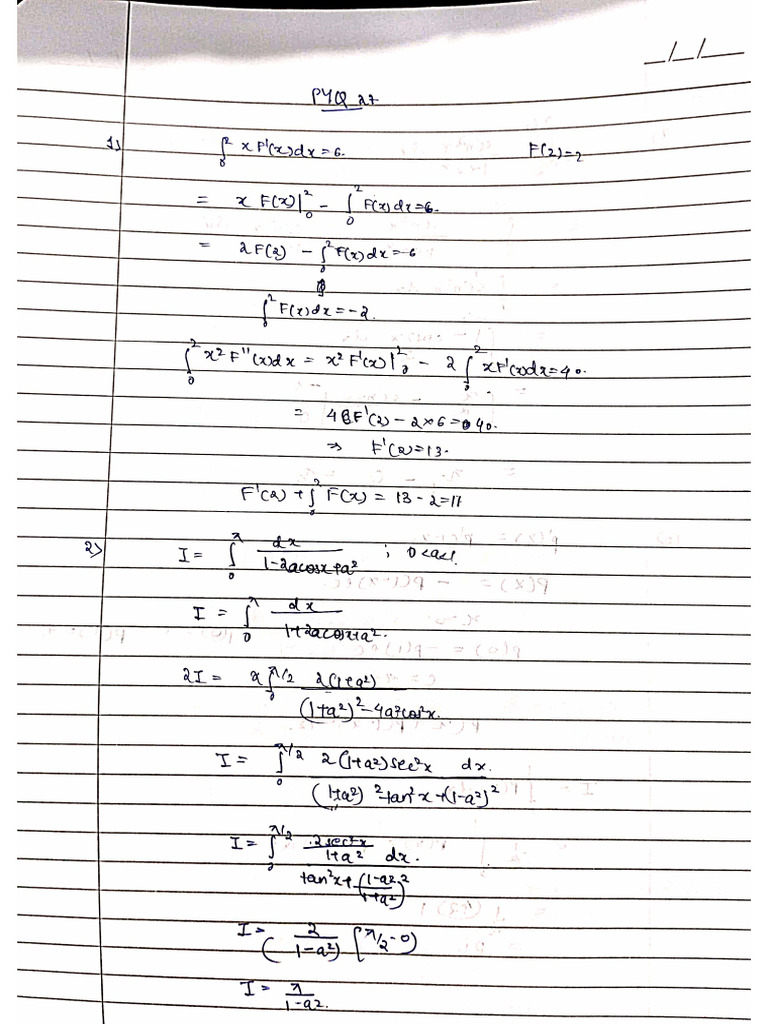 _/_/__
PYQ 27
1) ∫₀² x F'(x)dx = 6. F(2)=2
= x F(x)|₀² - ∫₀² F(x)dx = 6.
= 2F(2) - ∫₀² F(x)dx = 6
∫₀² F(x)dx = -2.
∫₀² x² F''(x)dx = x² F'(x)|₀² - 2∫₀² xF'(x)dx = 40.
= 4F'(2) - 2×6 = 40.
⇒ F'(2) = 13.
F'(2) + ∫₀² F(x) = 13 - 2 = 17
2) I = ∫₀^π dx/(1-2acosx+a²) ; 0<a<1.
I = ∫₀^π dx/(1+2acosx+a²).
2I = 2∫₀^(π/2) 2(1+a²)/((1+a²)² - 4a²cos²x.
I = ∫₀^(π/2) 2(1+a²)sec²x dx./((1+a²)²tan²x+(1-a²)²
I = ∫₀^(π/2) (2sec²x/(1+a²))/(tan²x+((1-a²)/(1+a²))²) dx.
I = 2/(1-a²) [π/2-0)
I = π/(1-a²).